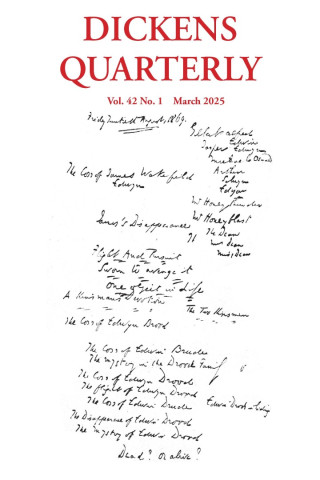 DICKENS
QUARTERLY
Vol. 42 No. 1 March 2025
Friday Twentieth August, 1869.
Gilbert Alfred
Edwin
Jasper Edwyn
Michael Oswald
Arthur
Selwyn
Edgar
Mr Honeythunder
Mr Honeyblast
The Dean
Mrs Dean
Miss Dean
The Loss of James Wakefield
Edwyn
James's Disappearance
Flight And Pursuit
Sworn to avenge it
One Object in Life
A Kinsman's Devotion
The Two Kinsmen
The Loss of Edwyn Brood
The Loss of Edwin Brude
The Mystery in the Drood Family
The Loss of Edwyn Drood
The flight of Edwyn Drood
Edwin Drood in hiding
The Loss of Edwin Drude
The Disappearance of Edwin Drood
The Mystery of Edwin Drood
Dead? or alive?